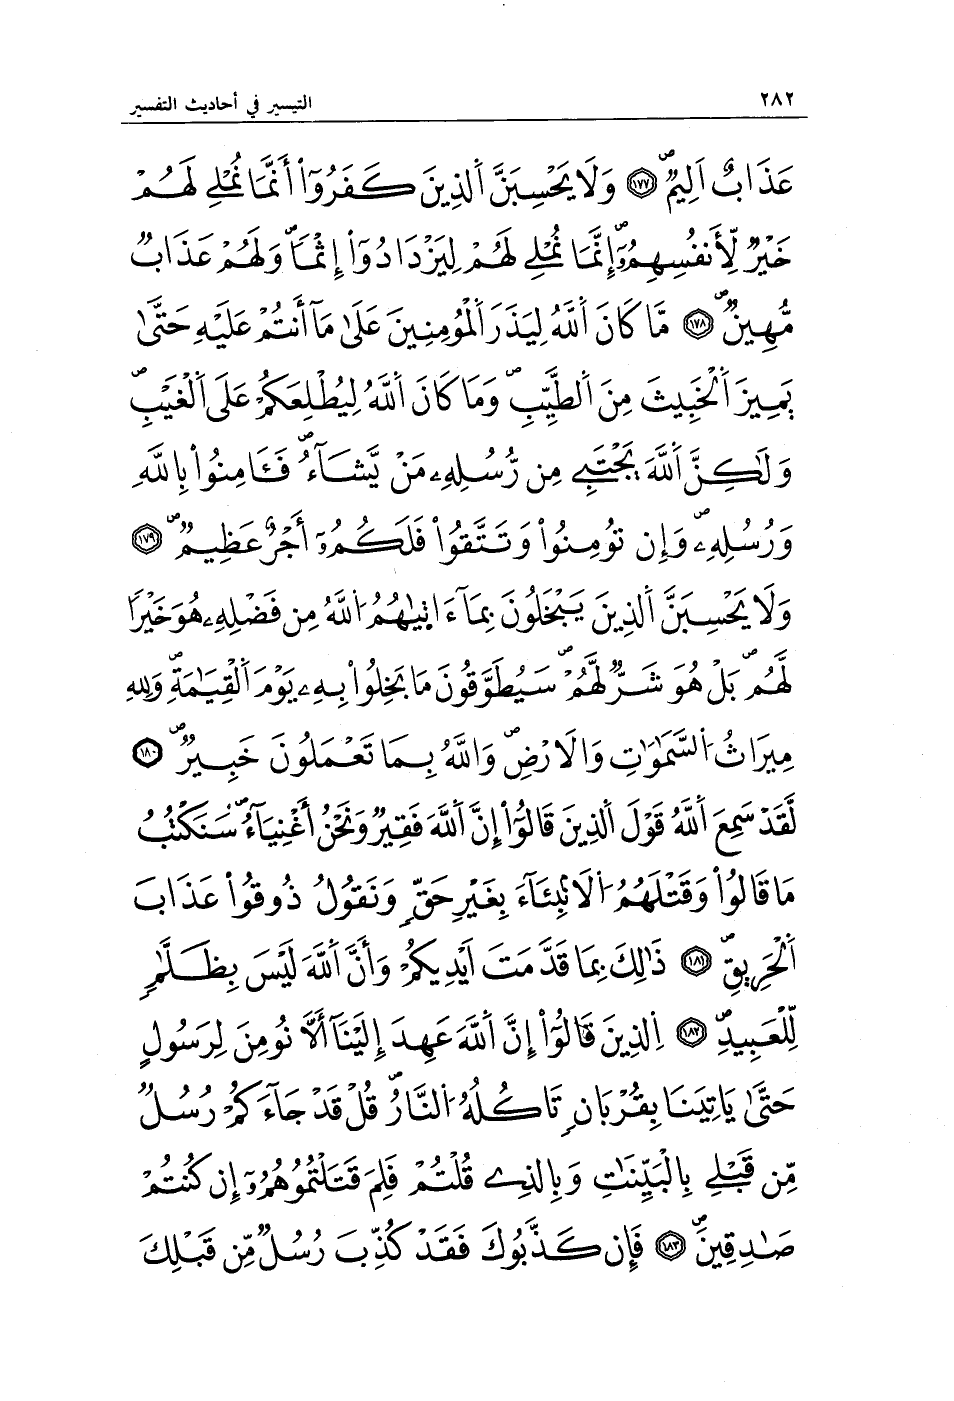 ٢٨٢
التيسير في أحاديث التفسير
عَذَابٌ اَلِيمٌۖ ١٧٧ وَلَا يَحْسِبَنَّ اَ۬لذِينَ كَفَرُوٓاْ أَنَّمَا نُمْلِے لَهُمْ
خَيْرٌ لِّأَنفُسِهِمُۥٓۖ إِنَّمَا نُمْلِے لَهُمْ لِيَزْدَادُوٓاْ إِثْماٗۖ وَلَهُمْ عَذَابٌ
مُّهِينٌۖ ١٧٨ مَّا كَانَ اَ۬للَّهُ لِيَذَرَ اَ۬لْمُؤْمِنِينَ عَلَىٰ مَآ أَنتُمْ عَلَيْهِ حَتَّىٰ
يَمِيزَ اَ۬لْخَبِيثَ مِنَ اَ۬لطَّيِّبِۖ وَمَا كَانَ اَ۬للَّهُ لِيُطْلِعَكُمْ عَلَى اَ۬لْغَيْبِۖ
وَلَٰكِنَّ اَ۬للَّهَ يَجْتَبِے مِن رُّسُلِهِۦ مَنْ يَّشَآءُۖ فَـَٔامِنُواْ بِاللَّهِ
وَرُسُلِهِۦۖ وَإِن تُومِنُواْ وَتَتَّقُواْ فَلَكُمُۥٓ أَجْرٌ عَظِيمٌۖ ١٧٩
وَلَا يَحْسِبَنَّ اَ۬لذِينَ يَبْخَلُونَ بِمَآ ءَاتٜيٰهُمُ اُ۬للَّهُ مِن فَضْلِهِۦ هُوَ خَيْراٗ
لَّهُمۖ بَلْ هُوَ شَرٌّ لَّهُمْۖ سَيُطَوَّقُونَ مَا بَخِلُواْ بِهِۦ يَوْمَ اَ۬لْقِيَٰمَةِۖ وَلِلهِ
مِيرَاثُ اُ۬لسَّمَٰوَٰتِ وَالَارْضِۖ وَاللَّهُ بِمَا تَعْمَلُونَ خَبِيرٌۖ ١٨٠
لَّقَدْ سَمِعَ اَ۬للَّهُ قَوْلَ اَ۬لذِينَ قَالُوٓاْ إِنَّ اَ۬للَّهَ فَقِيرٌ وَنَحْنُ أَغْنِيَآءُۖ سَنَكْتُبُ
مَا قَالُواْ وَقَتْلَهُمُ اُ۬لَانۢبِئَآءَ بِغَيْرِ حَقٍّ وَنَقُولُ ذُوقُواْ عَذَابَ
اَ۬لْحَرِيقِۖ ١٨١ ذَٰلِكَ بِمَا قَدَّمَتَ اَيْدِيكُمْ وَأَنَّ اَ۬للَّهَ لَيْسَ بِظَلَّٰمٍ
لِّلْعَبِيدِۖ ١٨٢ اِ۬لذِينَ قَالُوٓاْ إِنَّ اَ۬للَّهَ عَهِدَ إِلَيْنَآ أَلَّا نُومِنَ لِرَسُولٍ
حَتَّىٰ يَاتِيَنَا بِقُرْبَانٍ تَاكُلُهُ اُ۬لنَّارُۖ قُلْ قَدْ جَآءَكُمْ رُسُلٌ
مِّن قَبْلِے بِالْبَيِّنَٰتِ وَبِالذِے قُلْتُمْ فَلِمَ قَتَلْتُمُوهُمُۥٓ إِن كُنتُمْ
صَٰدِقِينَۖ ١٨٣ فَإِن كَذَّبُوكَ فَقَدْ كُذِّبَ رُسُلٌ مِّن قَبْلِكَ